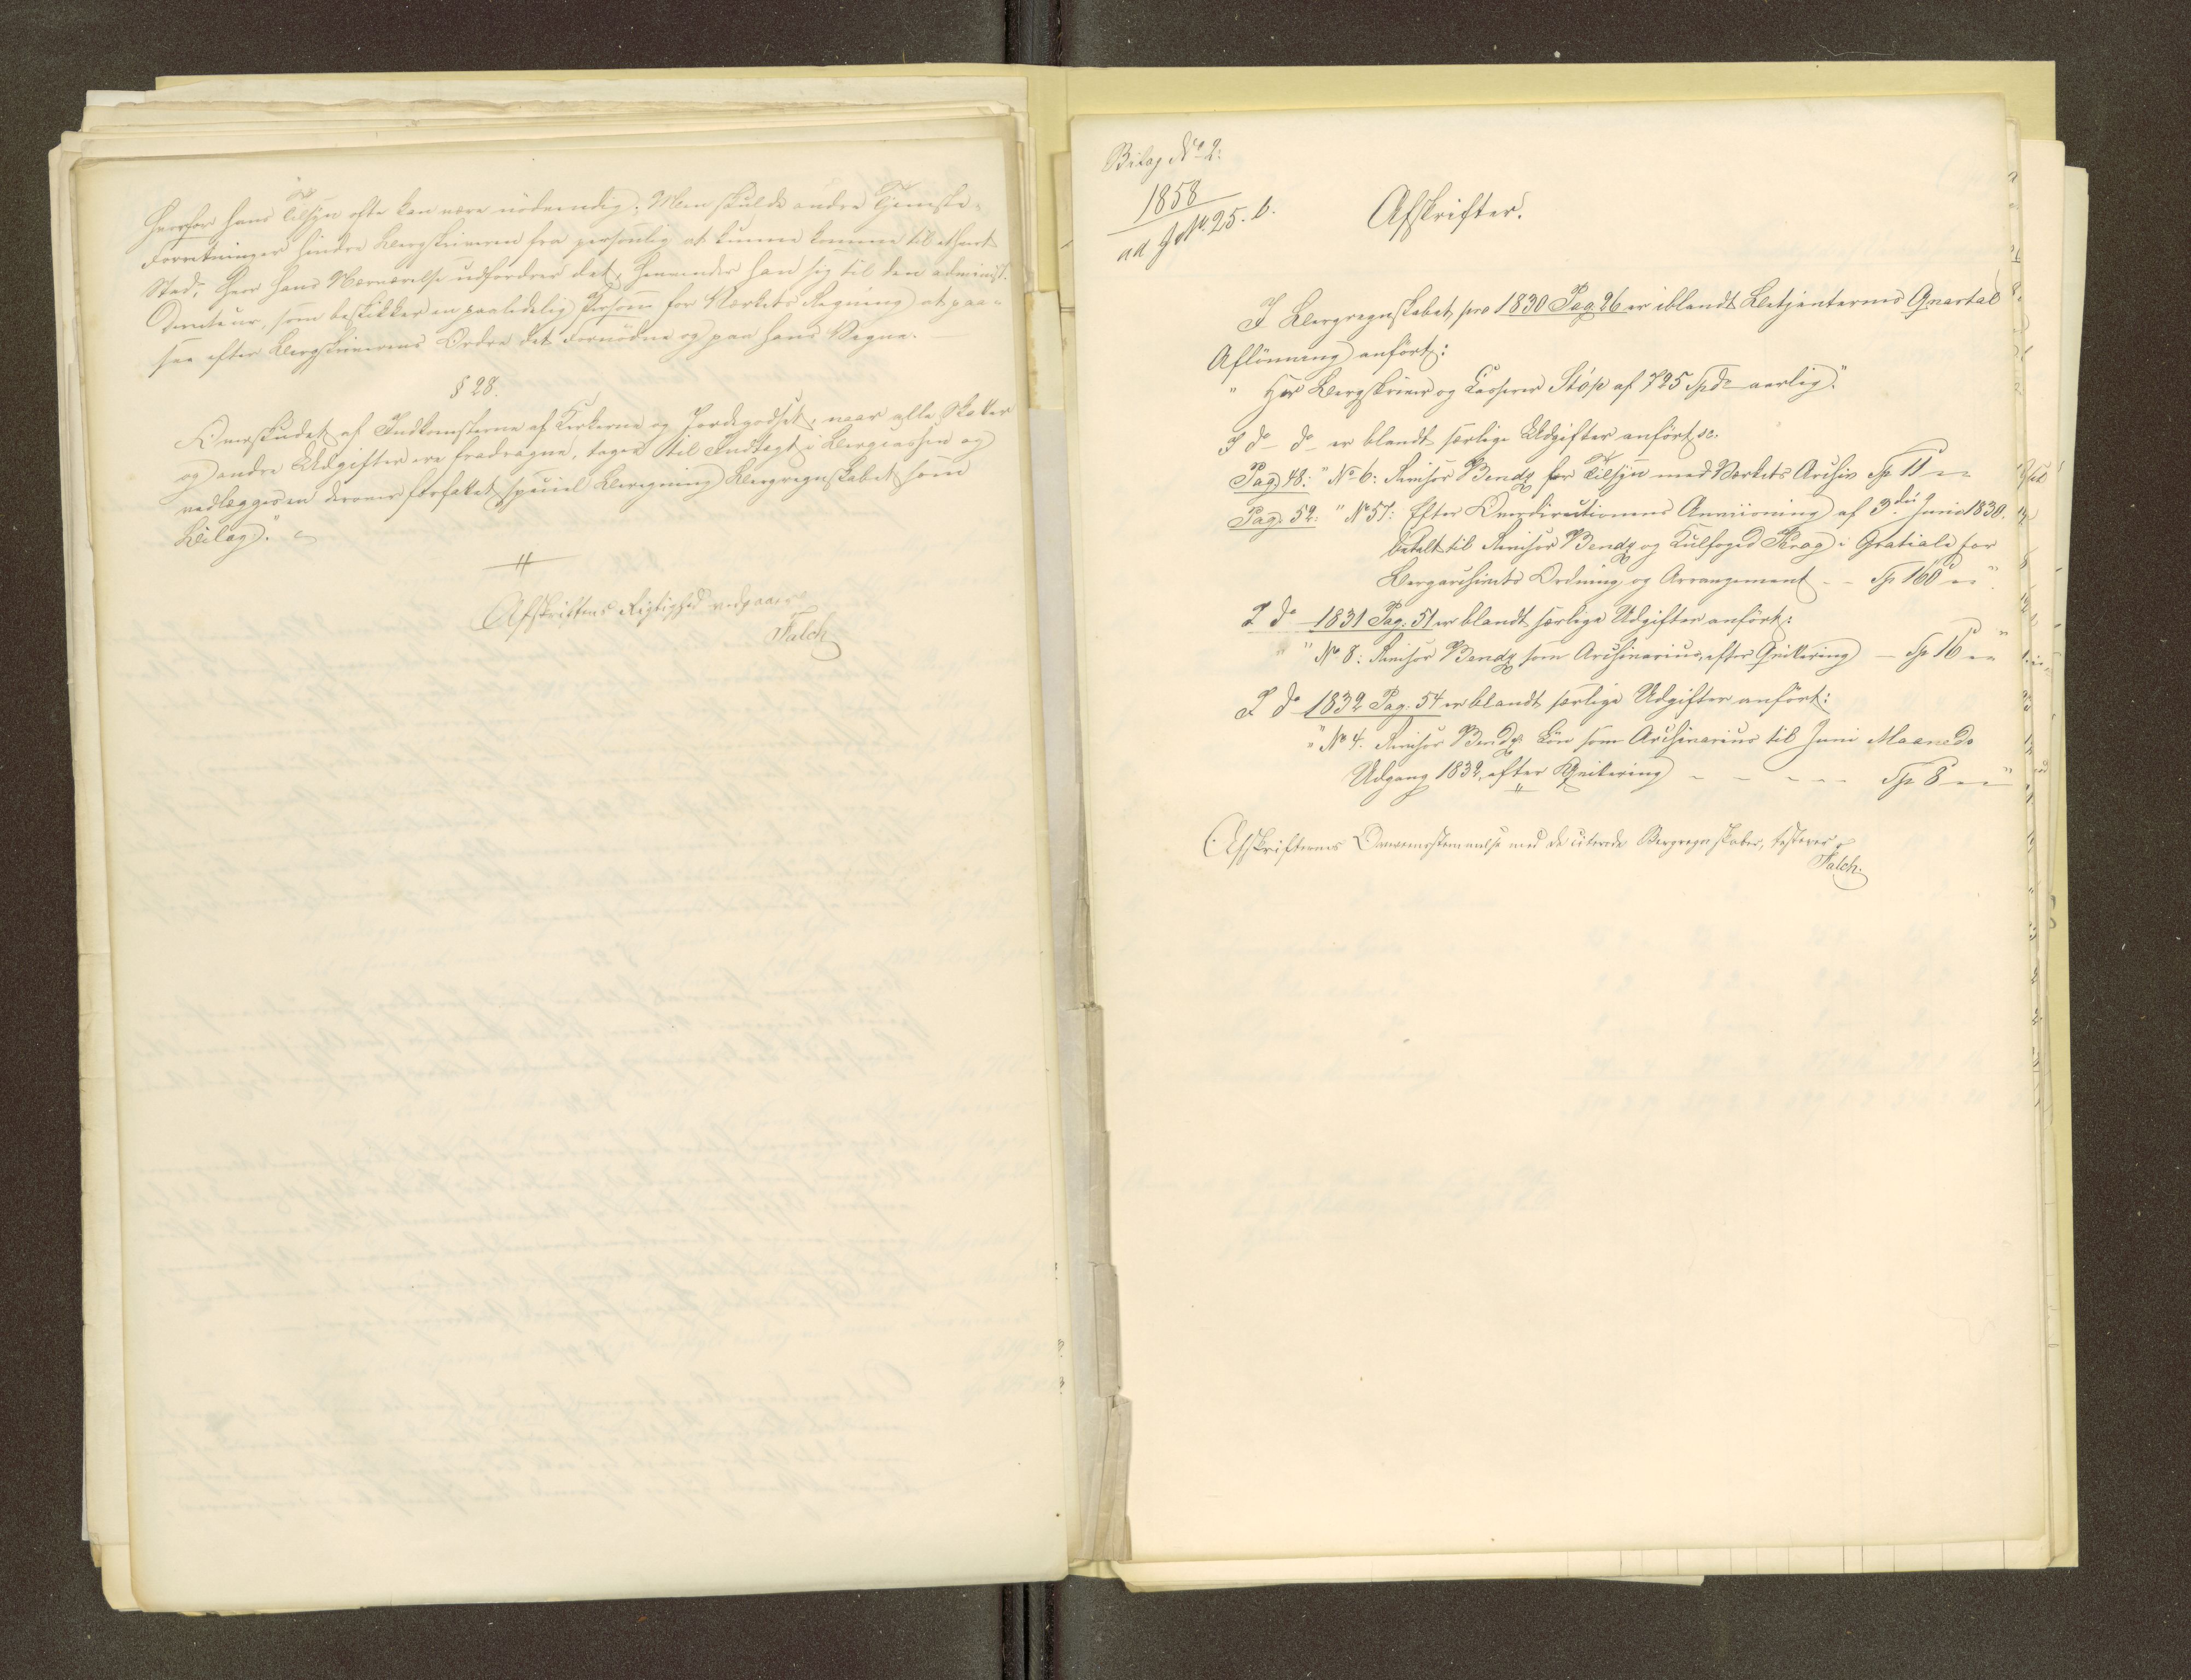 hvorfor hans Tilsyn ofte kan være nödvendig; Men skulde andre Tjeneste-
Forretninger hindre Bergskriveren fra personlig at kunne komme til ethvert
Sted, hvor hans Nærværelse udfordres det, henvender han sig til den administ.
Directeur, som beskikker en paalidelig Person for Værkets Regning at paa-
see efter Bergskriverens Ordre det Fornödne og paa hans Vegne. —
§ 28.
Overskudet af Indkomsterne af Kirkerne og Jordegodset, naar alle Skatter
og andre Udgifter ere fradragne, tages til Indtægt i Bergcassen og
vedlægges en derover forfattet speciel Beregning Bergregnskabet som
Bilag."
Afskriftens Rigtighed vedgaaer
Falch
Bilag No 2:
1858
ad J No. 25. b.
Afskrifter.
I Bergregnskabet pro 1830 Pag 26 er iblandt Betjenternes Qvartal
Aflönning anfört:
" Hr Bergskriver og Casserer Stóp af 725 Spd aarlig."
I do do er blandt særlige Udgifter anfört sc.
Pag. 48: " No 6: Revisor Bendz for Tilsyn med Værkets Archiv Sp 11 "–"
Pag. 52: " No 57: Efter Overdirectionens Anviisning af 3die Junii 1830.
betalt til Revisor Bendz og Kulfoged Krag i Gratiale for
Bergarchivets Ordning og Arrangement – – Sp 160 "–"
I do 1831 Pag: 51 er blandt særlige Udgifter anfört:
" No 8: Revisor Bendz som Archivarius, efter Qvitering — Sp 16 "–"
I do 1832 Pag. 54 er blandt særlige Udgifter anfört:
" No 4. Revisor Bendz Lön som Archivarius til Juni Maaneds
Udgang 1832, efter Qvitering – – – – – Sp 8 "–"
Afskrifternes Overeensstemmelse med de citerede Bergregnskaber, testerer
Falch.